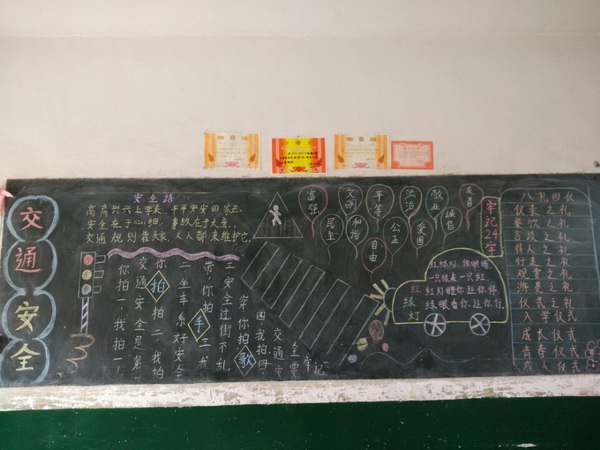 交通安全
安全路
高高兴兴上学来 平平安安回家去
安全在于心细 事故出于大意
交通规则靠大家 人人都来维护它
你拍一,我拍一,
交通安全是第一
你拍二,我拍二,
一坐车系好安全
你拍三
三安全过街不乱
你拍四我拍四
交通安全要牢记
拍手歌
富强
民主
文明
和谐
平等
自由
公正
法治
爱国
敬业
诚信
友善
牢记24字
红绿灯
红绿灯,
一只绿来一只红
红灯
绿眼看你
八礼四仪
仪表之礼
餐饮之礼
言谈之礼
待人之礼
行走之礼
观赏之礼
游览之礼
仪式之礼
入学仪式
成长仪式
青春仪式
成人仪式